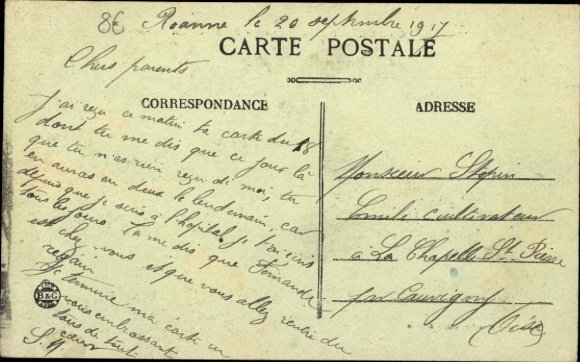 8€
Roanne le 20 septembre 1917
CARTE POSTALE
Chers parents
CORRESPONDANCE
J'ai reçu ce matin ta carte du 18
dont tu me dis que ce jour là
que tu n'as rien reçu de moi, tu
en auras eu deux le lendemain, car
depuis que je suis à l'hopital je t'écris
tous les jours. Tu me dis que Fernande
est chez vous et que vous allez rentré du
regain
Je termine ma carte en
vous embrassant
tous de tout
coeur
S. H
B&G
ADRESSE
Monsieur Stepin
Emile cultivateur
à La Chapelle St Pierre
par Cauvigny
Oise